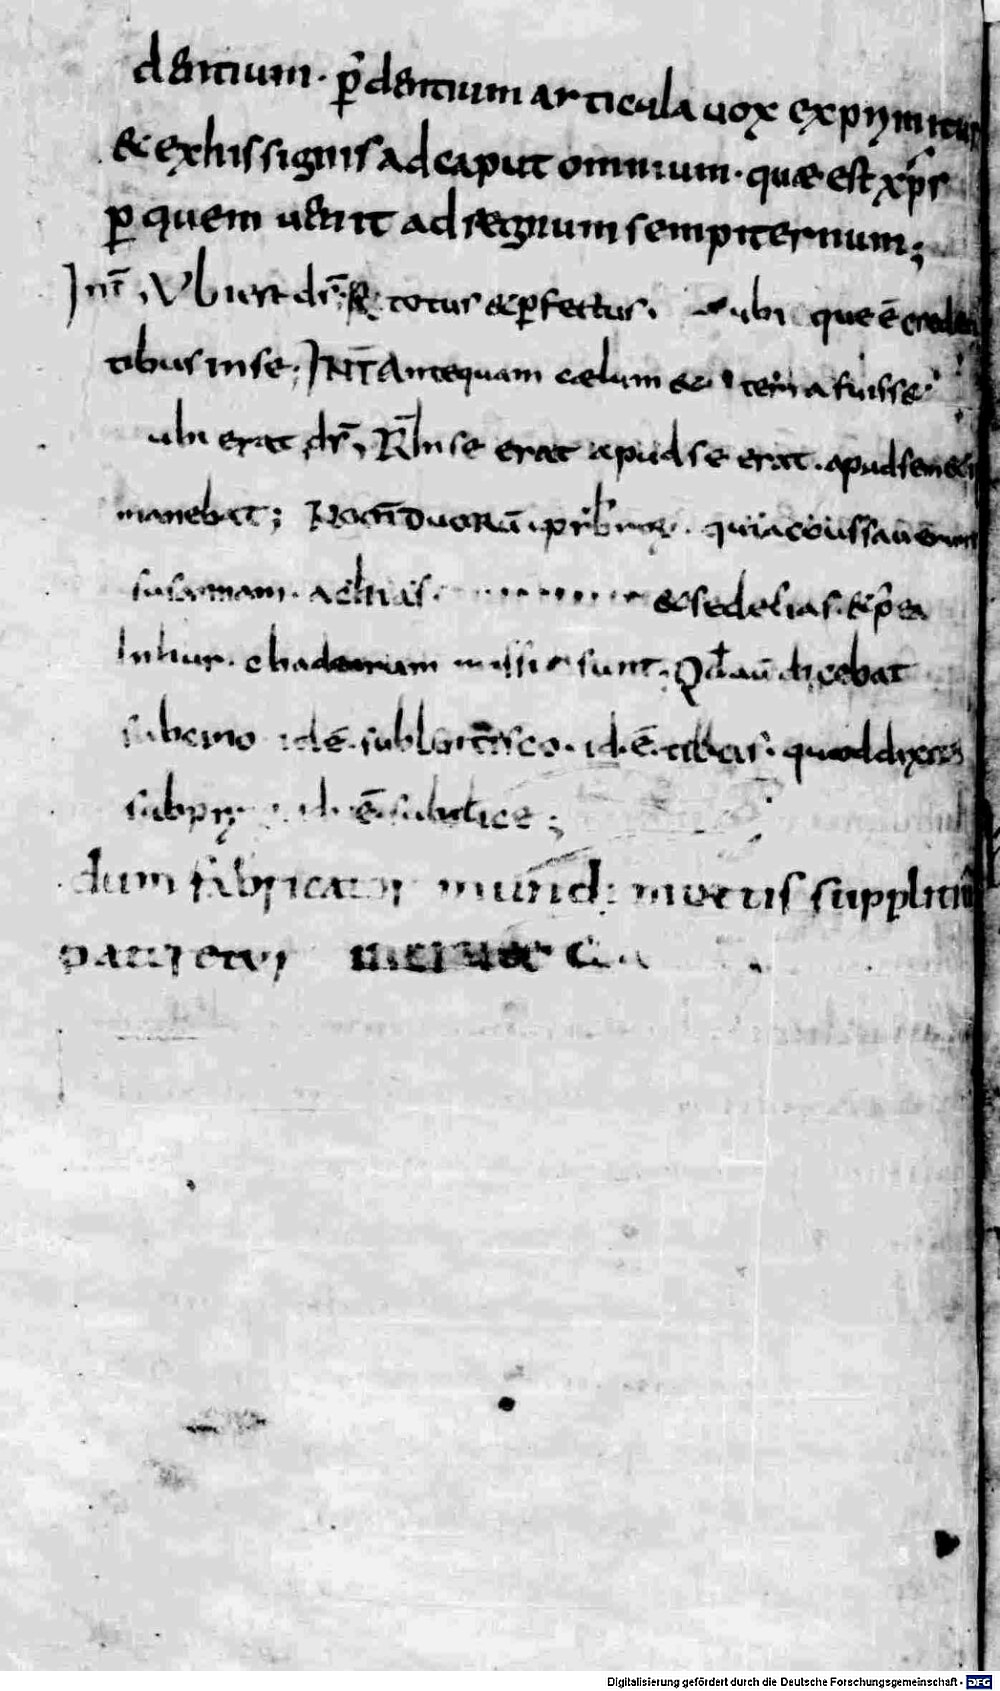 dentium. p̄ dentium articula uox exprimitur
& ex his signis ad caput omnium. quae est xp̄s
ꝑ quem uenit ad regnum sempiternum;
Int̄, Ubi est ds̄. R̄ totus & ꝑfectus. ubique ē creden
tibus in se; INT̄ Antequam celum & terra fuisse
ubi erat ds̄, R̄ In se erat apud se erat. apud semet
manebat; duorū pr̄br̄orū. qui accussauerunt
susannam. achias. & sedelias.
missi sunt. Qd̄ aū dicebat
sub cino id ē. sub lentisco. id. ē. quod dixit
sub id ē. sub ilice;
dum fabricator mundi mortis supplitiū
pateretur
Digitalisierung gefördert durch die Deutsche Forschungsgemeinschaft - DFG